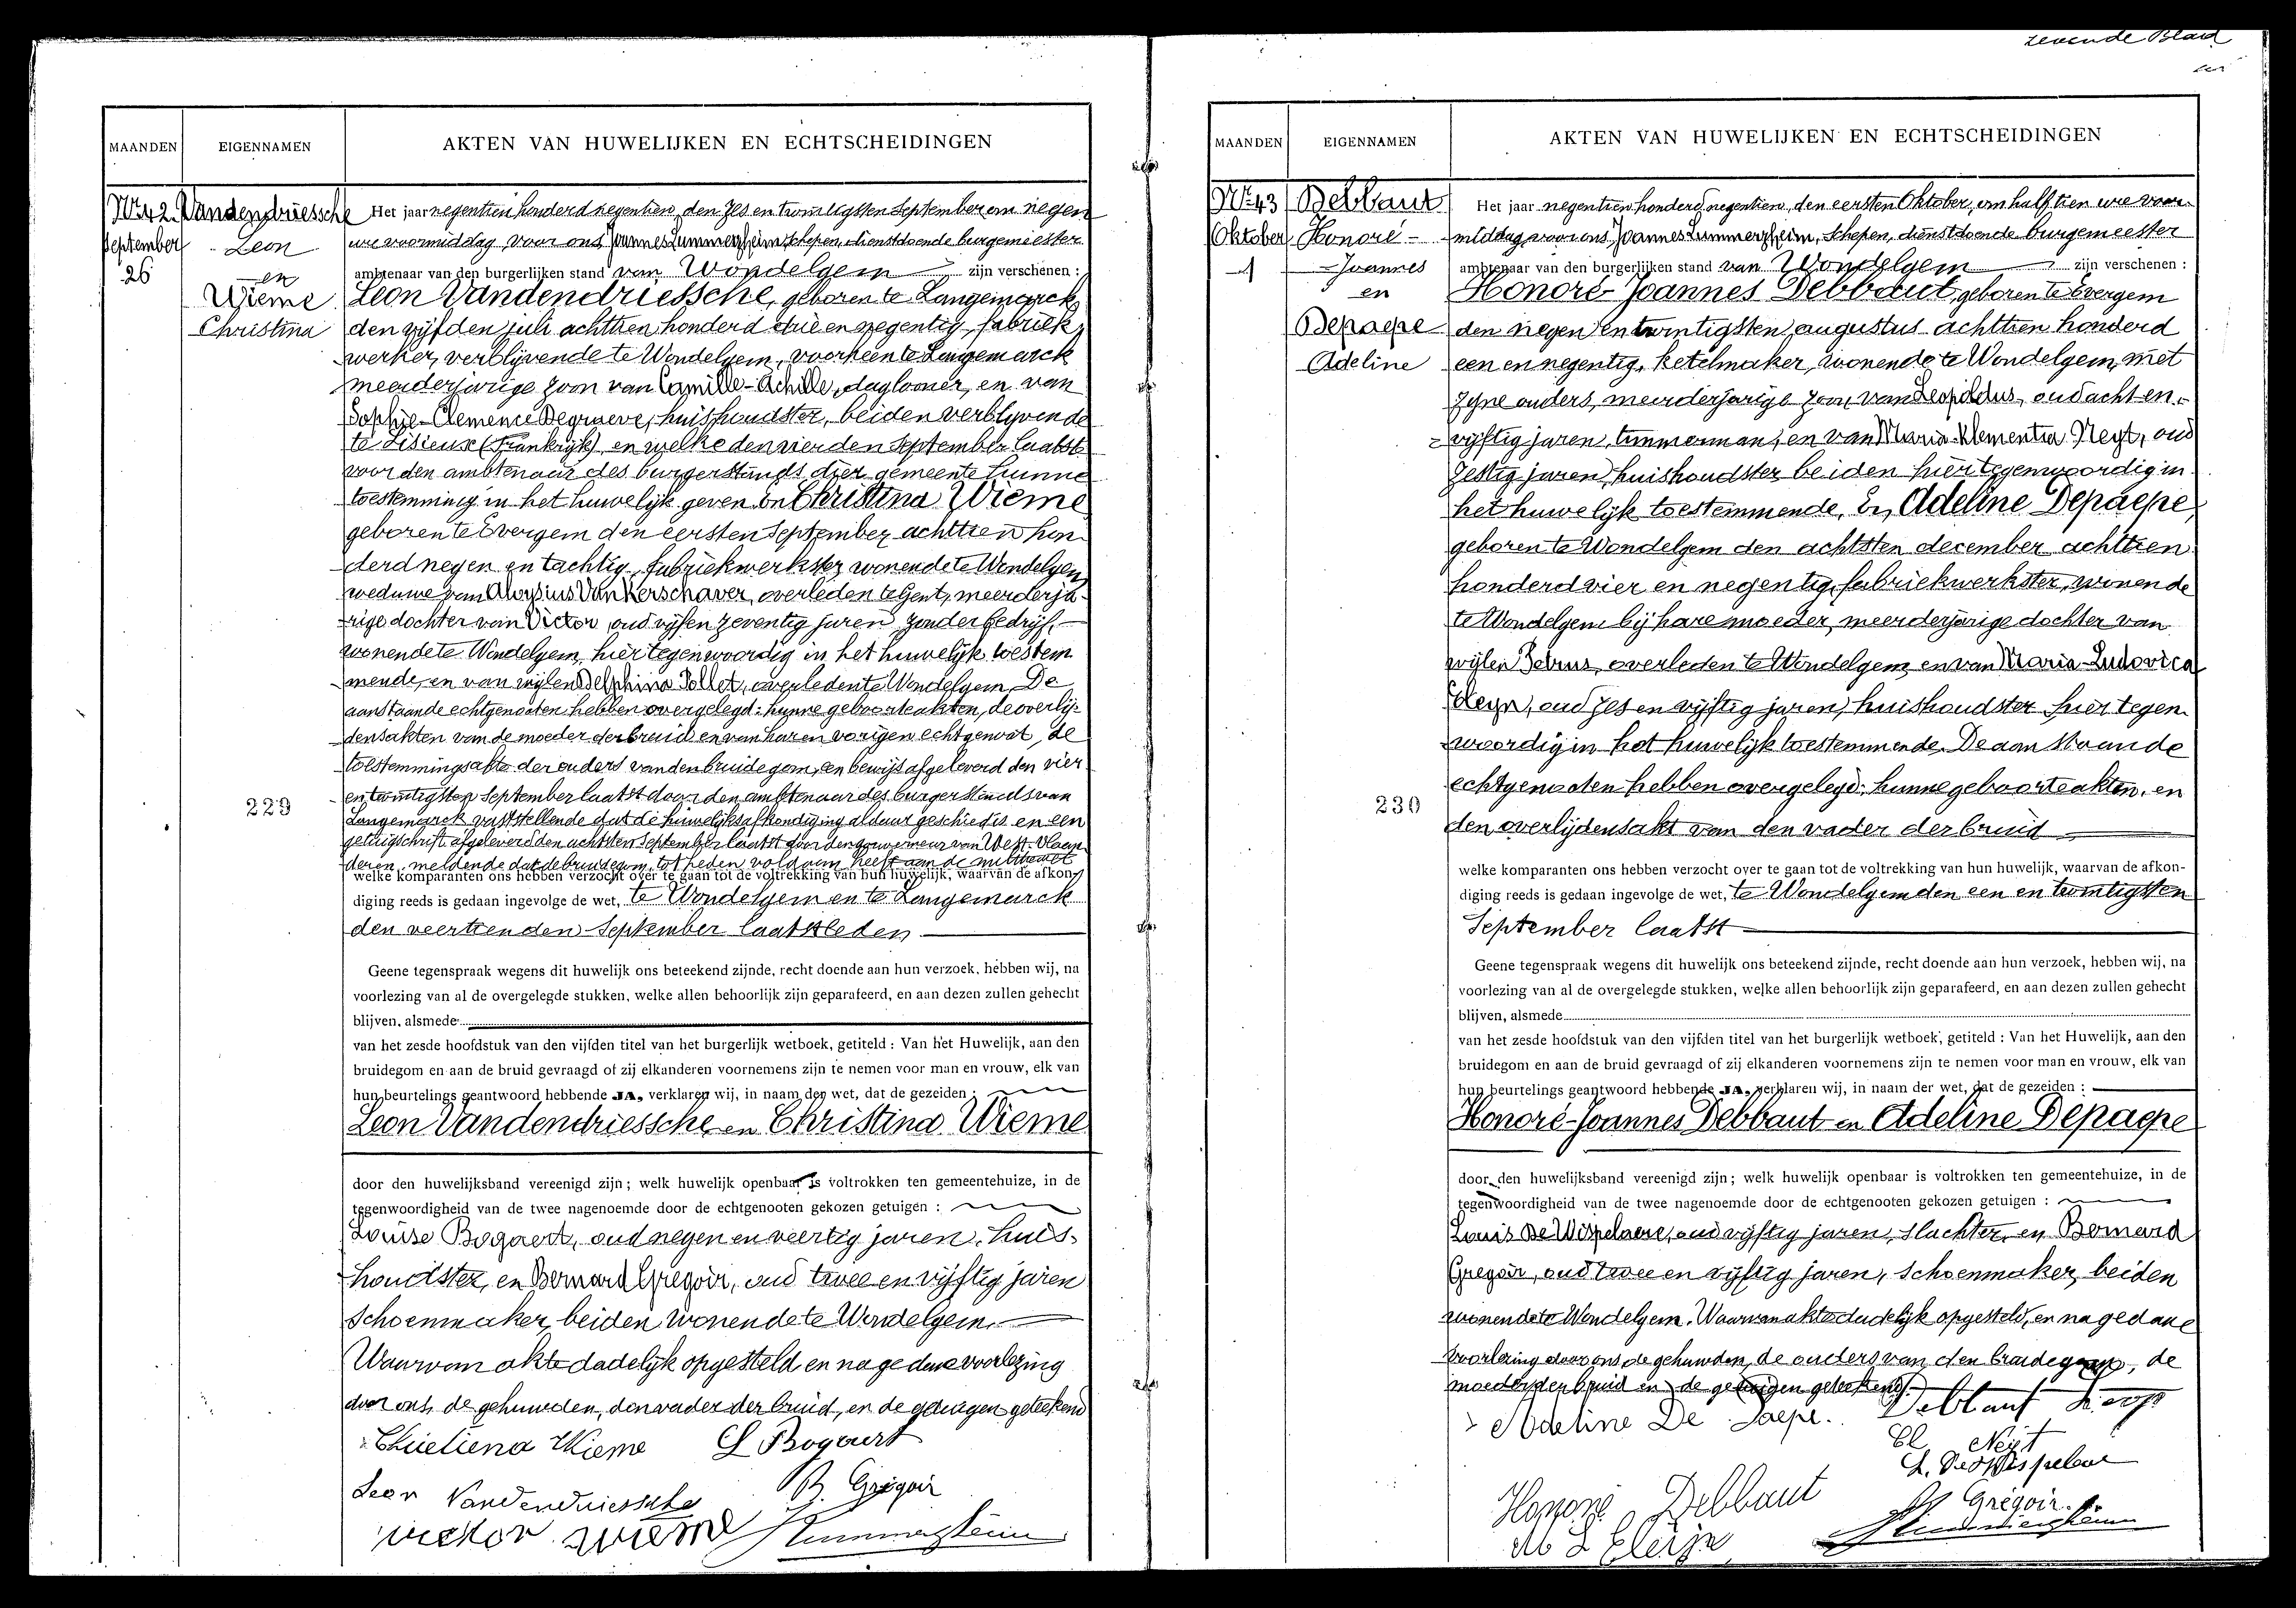 zevende Blad
MAANDEN
EIGENNAMEN
AKTEN VAN HUWELIJKEN EN ECHTSCHEIDINGEN
Nr 42.
September
26
Vandendriessche
Leon
en
Wieme
Christina
229
Het jaar negentien honderd negentien, den zes en twintigsten September om negen
ure voormiddag voor ons Joannes Lummerzheim, schepen, dienstdoende burgemeester
ambtenaar van den burgerlijken stand van Wondelgem zijn verschenen :
Leon Vandendriessche, geboren te Langemarck
den vijfden juli achttien honderd drie en negentig, fabriek-
werker, verblijvende te Wondelgem, voorheen te Langemarck
meerderjarige zoon van Camille-Achille, daglooner, en van
Sophie-Clemence Degraeve, huishoudster, beiden verblyvende
te Lisieux (Frankrijk), en welke den vierden September laatst
voor den ambtenaar des burgerstands dier gemeente hunne
toestemming in het huwelijk geven. En Christina Wieme
geboren te Evergem den eersten September achttien hon-
derd negen en tachtig, fabriekwerkster, wonende te Wondelgem,
weduwe van Aloysius Van Kerschaver, overleden te Gent, meerderja-
rige dochter van Victor, oud vijf en zeventig jaren, zonder bedrijf,
wonende te Wondelgem, hier tegenwoordig in het huwelijk toestem-
mende, en van wijlen Delphina Pollet, overleden te Wondelgem. De
aanstaande echtgenooten hebben overgelegd: hunne geboorteakten, de overlij-
densakten van de moeder der bruid en van haren vorigen echtgenoot, de
toestemmingsakte der ouders van den bruidegom, een bewijs afgeleverd den vier
en twintigsten September laatst door den ambtenaar des burgerstands van
Langemarck vaststellende dat de huwelijksafkondiging aldaar geschied is, en een
getuigschrift afgeleverd den achtsten September laatst door den gouverneur van West-Vlaan-
deren, meldende dat de bruidegom, tot heden voldaan heeft aan de militiewet
welke komparanten ons hebben verzocht over te gaan tot de voltrekking van hun huwelijk, waarvan de afkon-
diging reeds is gedaan ingevolge de wet, te Wondelgem en te Langemarck
den veertienden September laatstleden
Geene tegenspraak wegens dit huwelijk ons beteekend zijnde, recht doende aan hun verzoek, hebben wij, na
voorlezing van al de overgelegde stukken, welke allen behoorlijk zijn geparafeerd, en aan dezen zullen gehecht
blijven, alsmede
van het zesde hoofdstuk van den vijfden titel van het burgerlijk wetboek, getiteld : Van het Huwelijk, aan den
bruidegom en aan de bruid gevraagd of zij elkanderen voornemens zijn te nemen voor man en vrouw, elk van
hun beurtelings geantwoord hebbende JA, verklaren wij, in naam der wet, dat de gezeiden :
Leon Vandendriessche en Christina Wieme
door den huwelijksband vereenigd zijn ; welk huwelijk openbaar is voltrokken ten gemeentehuize, in de
tegenwoordigheid van de twee nagenoemde door de echtgenooten gekozen getuigen :
Louise Bogaert, oud negen en veertig jaren, huis-
houdster, en Bernard Gregoir, oud twee en vijftig jaren
schoenmaker, beiden wonende te Wondelgem.
Waarvan akte dadelijk opgesteld en na gedane voorlezing
door ons, de gehuwden, den vader der bruid, en de getuigen geteekend
Christiena Wieme L Bogaert
Leon Vandendriessche B. Grégoir
victor wieme Lummerzheim
MAANDEN
EIGENNAMEN
AKTEN VAN HUWELIJKEN EN ECHTSCHEIDINGEN
Nr 43
Oktober
1
Debbaut
Honoré-
Joannes
en
Depaepe
Adeline
230
Het jaar negentien honderd negentien, den eersten Oktober, om half tien ure voor-
middag voor ons Joannes Lummerzheim, schepen, dienstdoende burgemeester
ambtenaar van den burgerlijken stand van Wondelgem zijn verschenen :
Honoré-Joannes Debbaut, geboren te Evergem
den negen en twintigsten augustus achttien honderd
een en negentig, ketelmaker, wonende te Wondelgem, met
zyne ouders, meerderjarige zoon van Leopoldus, oud acht en
vijftig jaren, timmerman, en van Maria-Klementia Neyt, oud
zestig jaren, huishoudster beiden hier tegenwoordig in
het huwelijk toestemmende. En Adeline Depaepe,
geboren te Wondelgem den achtsten december achttien
honderd vier en negentig, fabriekwerkster, wonende
te Wondelgem bij hare moeder, meerderjarige dochter van
wijlen Petrus, overleden te Wondelgem, en van Maria-Ludovica
Eleyn, oud zes en vijftig jaren, huishoudster hier tegen-
woordig in het huwelijk toestemmende. De aanstaande
echtgenooten hebben overgelegd: hunne geboorteakten, en
den overlijdensakt van den vader der bruid
welke komparanten ons hebben verzocht over te gaan tot de voltrekking van hun huwelijk, waarvan de afkon-
diging reeds is gedaan ingevolge de wet, te Wondelgem den een en twintigsten
September laatst
Geene tegenspraak wegens dit huwelijk ons beteekend zijnde, recht doende aan hun verzoek, hebben wij, na
voorlezing van al de overgelegde stukken, welke allen behoorlijk zijn geparafeerd, en aan dezen zullen gehecht
blijven, alsmede
van het zesde hoofdstuk van den vijfden titel van het burgerlijk wetboek, getiteld : Van het Huwelijk, aan den
bruidegom en aan de bruid gevraagd of zij elkanderen voornemens zijn te nemen voor man en vrouw, elk van
hun beurtelings geantwoord hebbende JA, verklaren wij, in naam der wet, dat de gezeiden :
Honoré-Joannes Debbaut en Adeline Depaepe
door den huwelijksband vereenigd zijn ; welk huwelijk openbaar is voltrokken ten gemeentehuize, in de
tegenwoordigheid van de twee nagenoemde door de echtgenooten gekozen getuigen :
Louis De Wispelaere, oud vijftig jaren, slachter, en Bernard
Gregoir, oud twee en vijftig jaren, schoenmaker, beiden
wonende te Wondelgem. Waarvan akte dadelijk opgesteld, en na gedane
voorlezing door ons de gehuwden, de ouders van den bruidegom, de
moeder der bruid en de getuigen geteekend.
Adeline De Paepe. Debbaut Leop
Cl Neyt
L. De Wispelaere
Honoré Debbaut B Grégoir.
M L Eleijn Lummerzheim